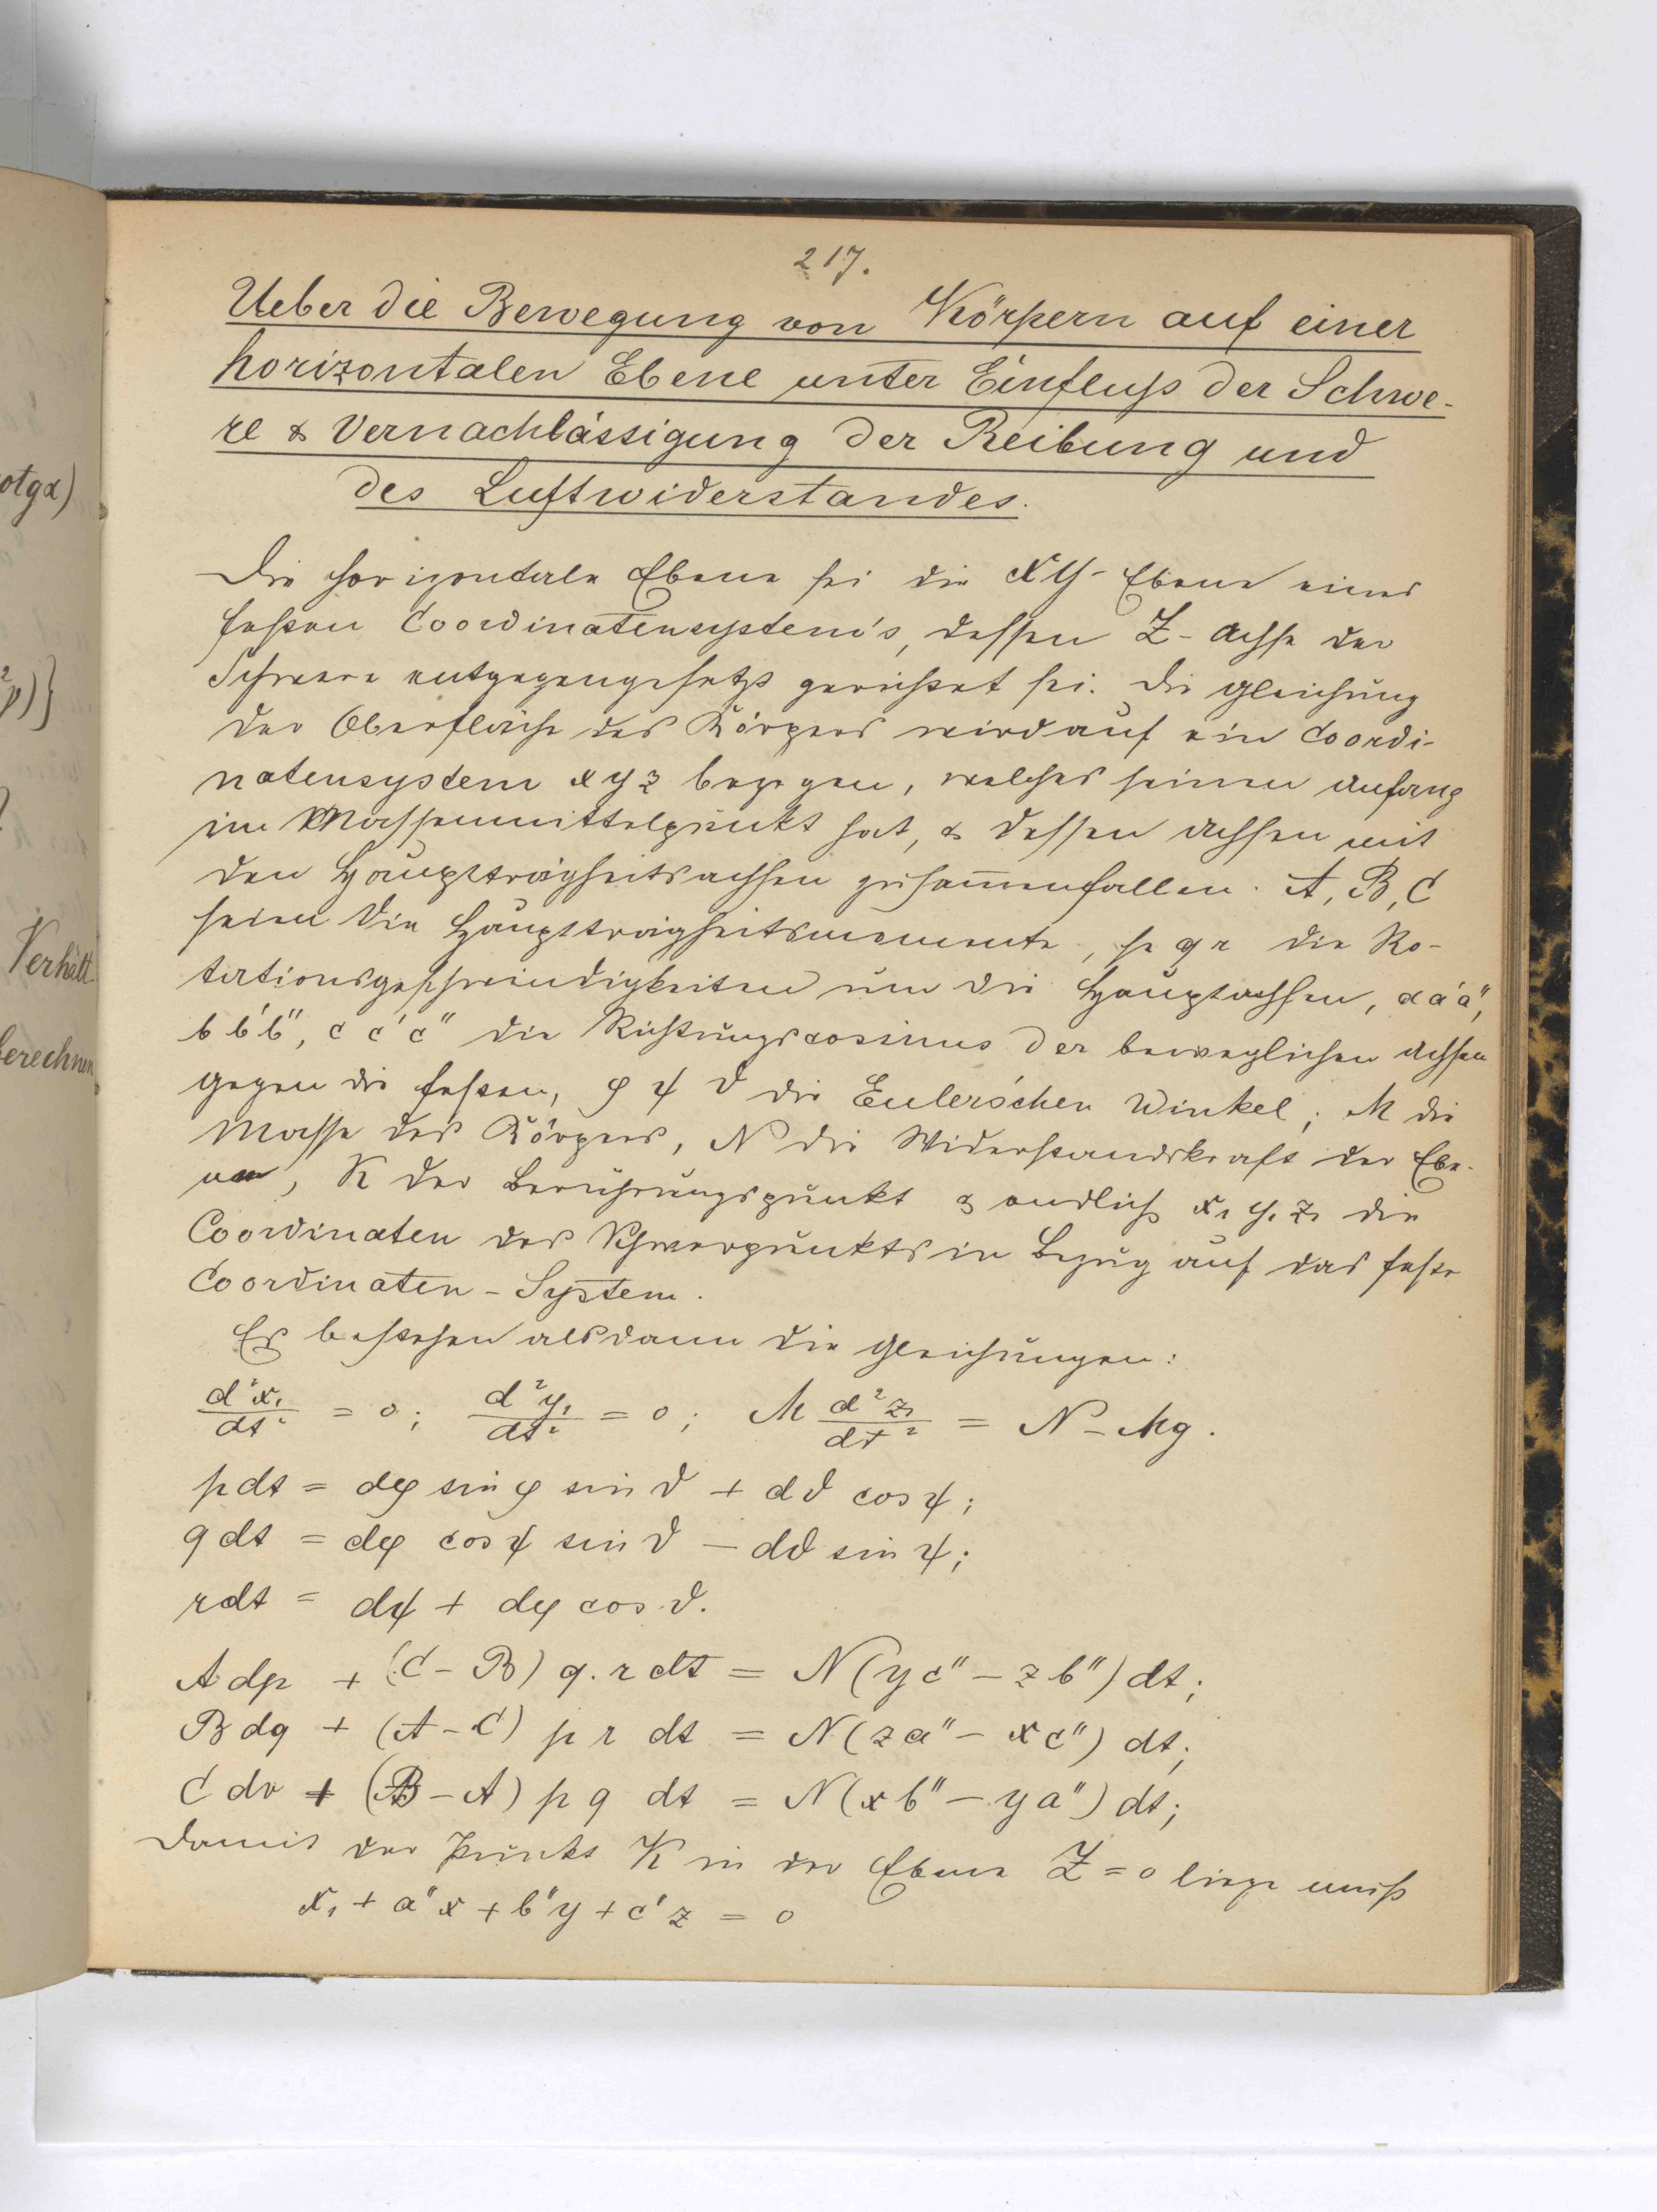 217.
Ueber die Bewegung von Körpern auf einer
horizontalen Ebene unter Einfluss der Schwe-
re & Vernachlässigung der Reibung und
des Luftwiderstandes.
Die horizontale Ebene sei die XY-Ebene eines
festen Coordinatensystem's, dessen Z-Achse der
Schwere entgegengesetzt gerichtet sei. Die Gleichung
der Oberfläche des Körpers wird auf ein Coordi-
natensystem x y z bezogen, welches seinen Anfang
im Massenmittelpunkt hat, & dessen Achsen mit
den Hauptträgheitsachsen zusammenfallen. A, B, C
seien die Hauptträgheitsmomente, p q r die Ro-
tationsgeschwindigkeiten um die Hauptachsen, a a' a",
b b' b", c c' c" die Richtungscosinus der beweglichen Achsen
gegen die festen, φ ψ ϑ die Euler'schen Winkel; M die
Masse des Körpers, N die Widerstandskraft der Ebe-
ne, K der Berührungspunkt & endlich x₁ y₁ z₁ die
Coordinaten des Schwerpunkts in Bezug auf das feste
Coordinaten-System.
Es bestehen alsdann die Gleichungen:
d²x₁/dt² = 0; d²y₁/dt² = 0; M d²z₁/dt² = N - Mg.
p dt = dφ sin φ sin ϑ + dϑ cos ψ;
q dt = dφ cos ψ sin ϑ - dϑ sin ψ;
r dt = dψ + dφ cos ϑ.
A dp + (C - B) q. r dt = N (y c" - z b") dt;
B dq + (A - C) p r dt = N (z a" - x c") dt;
C dr + (B - A) p q dt = N (x b" - y a") dt;
Damit der Punkt K in der Ebene Z = 0 liege muss
x₁ + a" x + b" y + c' z = 0
otgα)
²p)}
Verhält-
berechnen